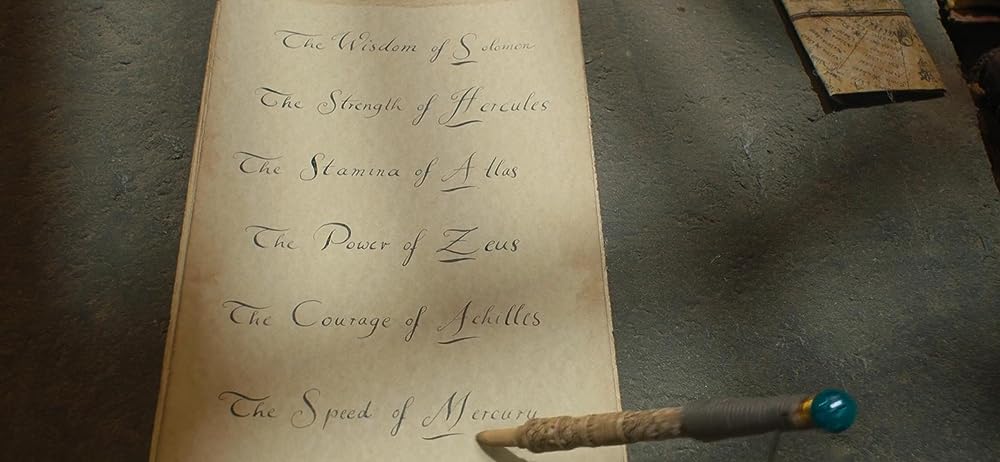 The Wisdom of Solomon
The Strength of Hercules
The Stamina of Atlas
The Power of Zeus
The Courage of Achilles
The Speed of Mercury